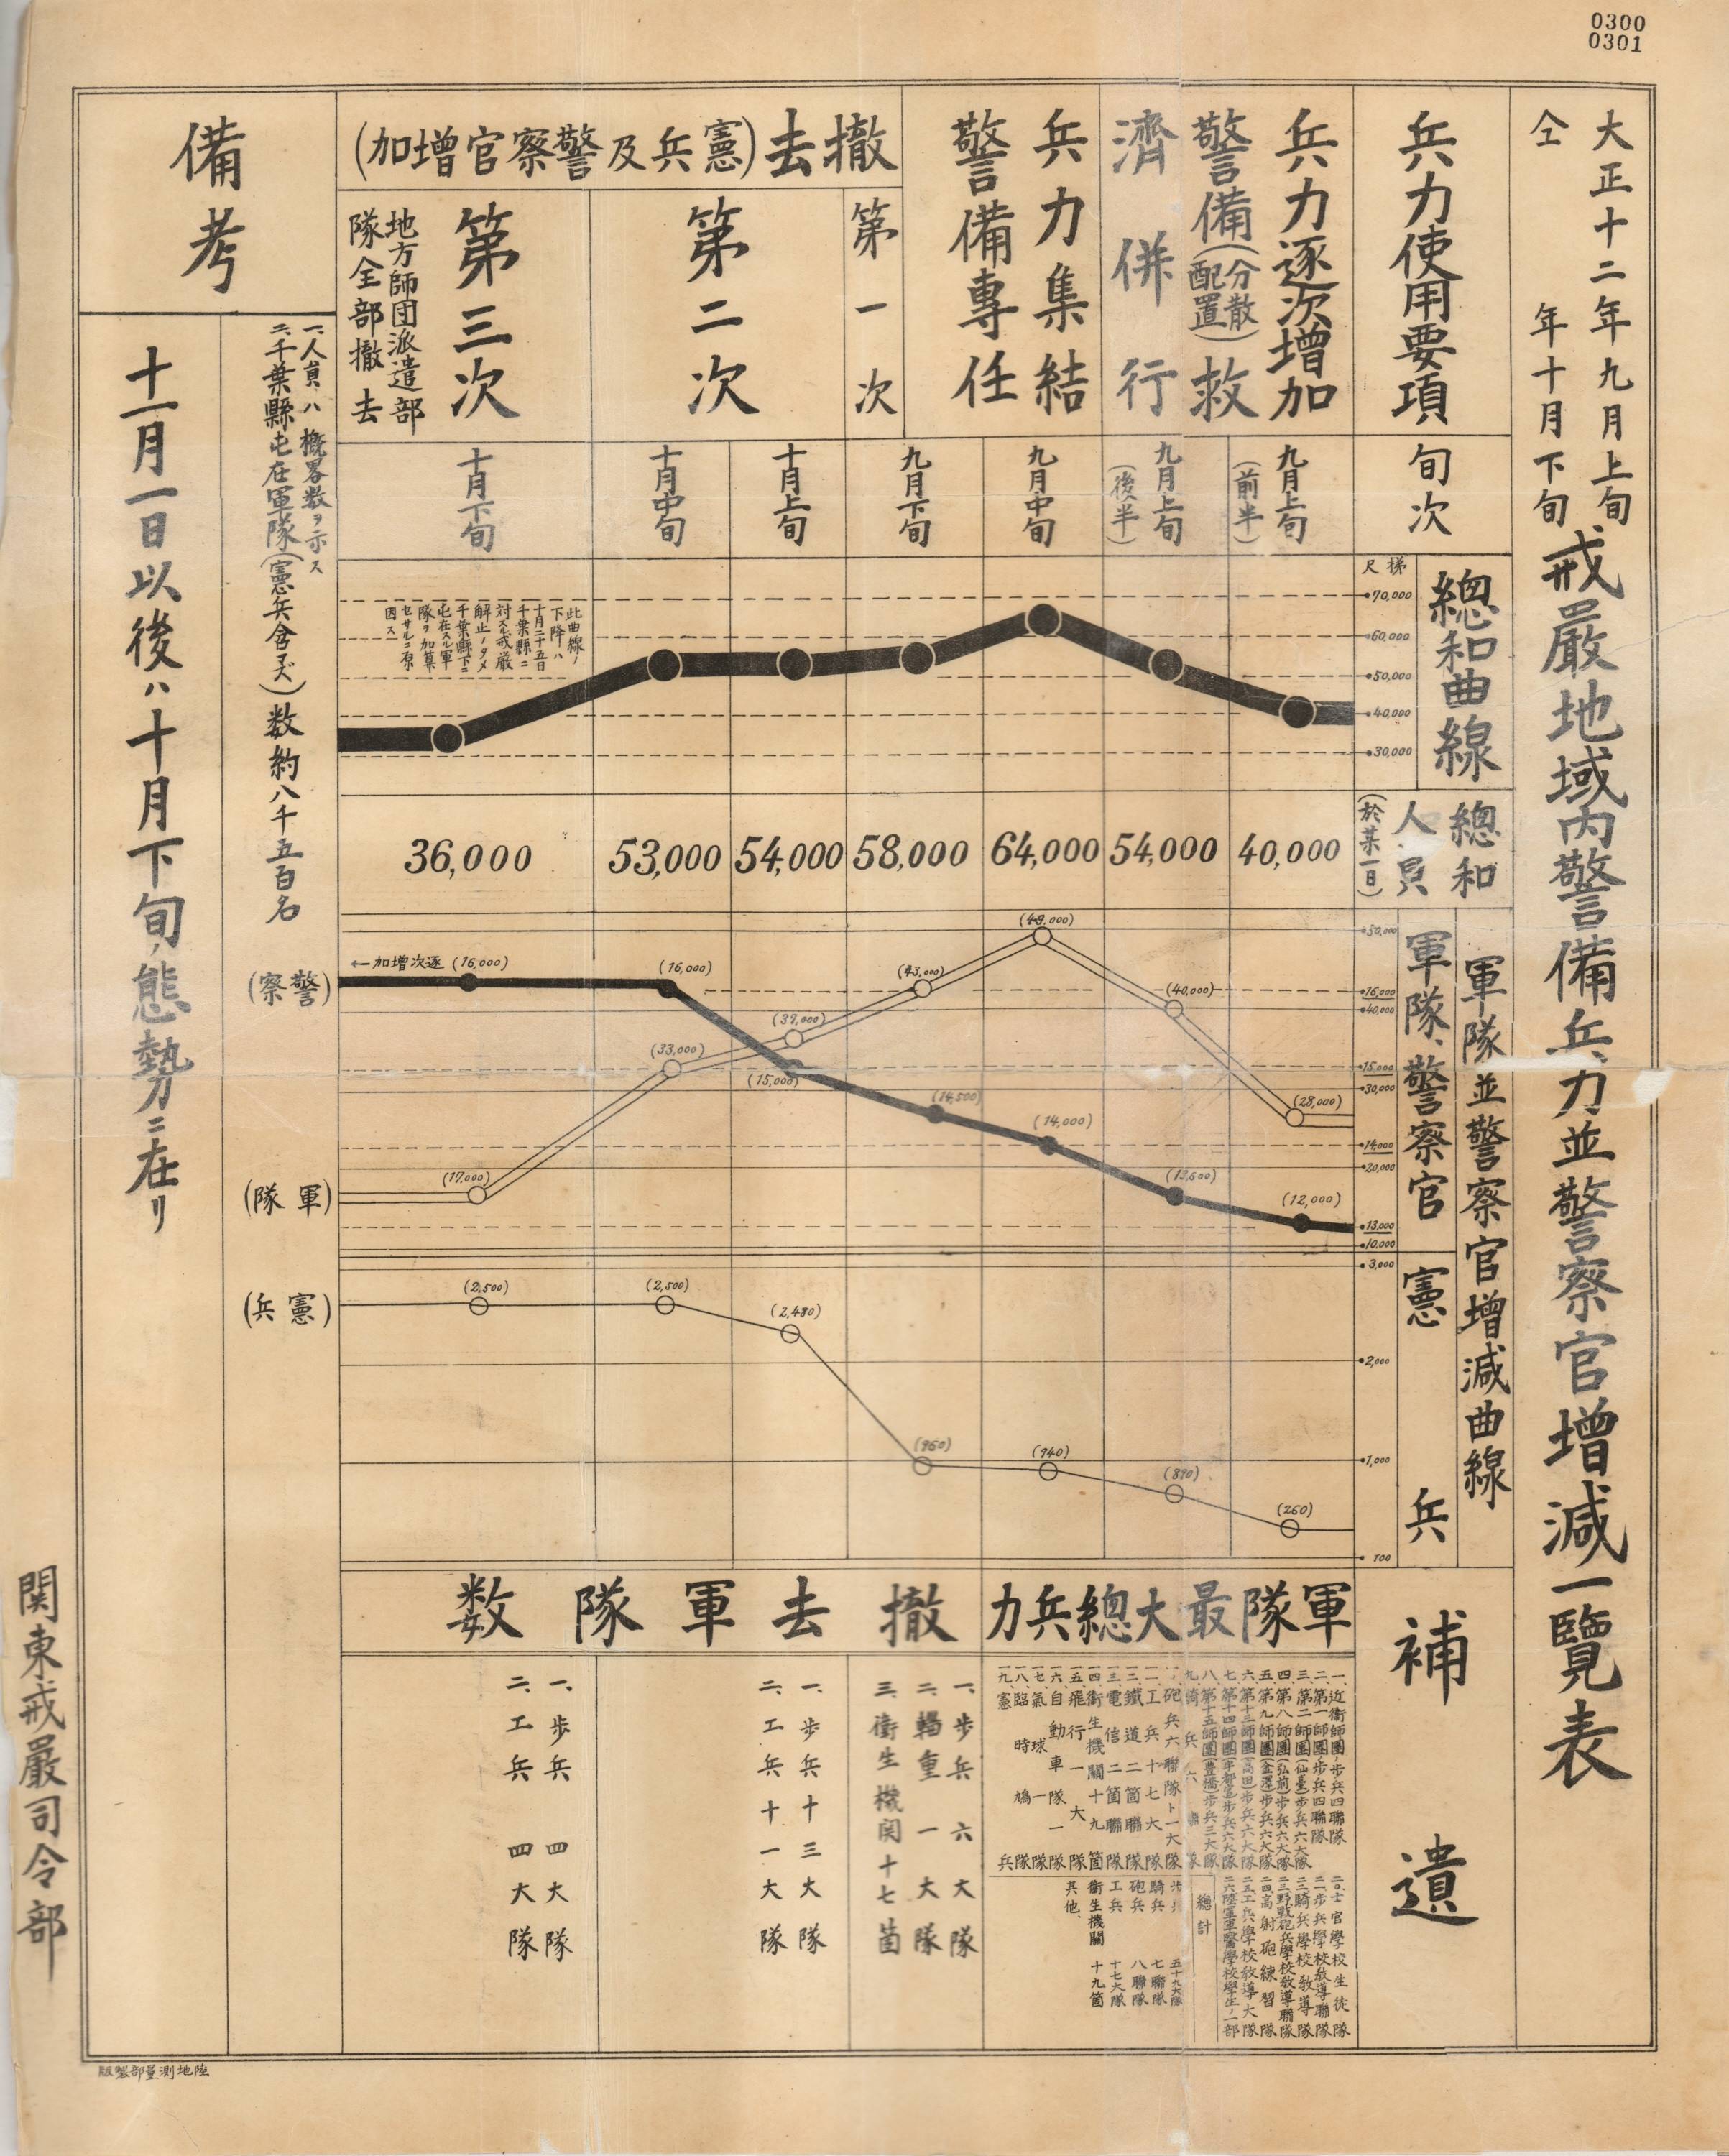 0300
0301
大正十二年九月上旬
仝　年十月下旬
戒嚴地域内警備兵力並警察官増減一覽表
兵力使用要項
兵力逐次増加
警備(分散配置)救
濟併行
兵力集結
警備專任
撤去(憲兵及警察官増加)
第一次
第二次
第三次
地方師団派遣部
隊全部撤去
備考
旬次
九月上旬(前半)
九月上旬(後半)
九月中旬
九月下旬
十月上旬
十月中旬
十月下旬
總和曲線
梯尺
70,000
60,000
50,000
40,000
30,000
此曲線ノ
下降ハ
十月二十五日
千葉縣ニ
対スル戒嚴
解止ノタメ
千葉縣下ニ
屯在スル軍
隊ヲ加算
セサルニ原
因ス
總和人員(於某一日)
40,000
54,000
64,000
58,000
54,000
53,000
36,000
軍隊並警察官増減曲線
軍隊、警察官
50,000
16,000
40,000
15,000
30,000
14,000
20,000
13,000
10,000
(28,000)
(40,000)
(49,000)
(43,000)
(37,000)
(33,000)
(17,000)
(12,000)
(13,500)
(14,000)
(14,500)
(15,000)
(16,000)
(16,000)
逐次増加←
(警察)
(軍隊)
憲兵
3,000
2,000
1,000
100
(260)
(890)
(940)
(960)
(2,480)
(2,500)
(2,500)
(憲兵)
補遺
軍隊最大總兵力
一、近衛師團、歩兵四聯隊
二、第一師團歩兵四聯隊
三、第二師團(仙臺)歩兵六大隊
四、第八師團(弘前)歩兵六大隊
五、第九師團(金澤)歩兵六大隊
六、第十三師團(高田)歩兵六大隊
七、第十四師團(宇都宮)歩兵六大隊
八、第十五師團(豊橋)歩兵三大隊
九、騎兵六聯隊
一〇、砲兵六聯隊ト一大隊
一一、工兵十七大隊
一二、鐵道二箇聯隊
一三、電信二箇聯隊
一四、衛生機關十九箇
一五、飛行一大隊
一六、自動車隊一隊
一七、氣球一隊
一八、臨時鳩隊
一九、憲兵
二〇、士官學校生徒隊
二一、歩兵學校教導聯隊
二二、騎兵學校教導隊
二三、野戰砲兵學校教導聯隊
二四、高射砲練習隊
二五、工兵學校教導大隊
二六、陸軍軍醫學校學生ノ一部
總計
歩兵　五十九大隊
騎兵　七聯隊
砲兵　八聯隊
工兵　十七大隊
衛生機關　十九箇
其他
撤去軍隊数
一、歩兵六大隊
二、輜重一大隊
三、衛生機関十七箇
一、歩兵十三大隊
二、工兵十一大隊
一、歩兵四大隊
二、工兵四大隊
一、人員ハ概畧数ヲ示ス
二、千葉縣屯在軍隊(憲兵含マズ)数約八千五百名
十一月一日以後ハ十月下旬ノ態勢ニ在リ
関東戒嚴司令部
陸地測量部製版